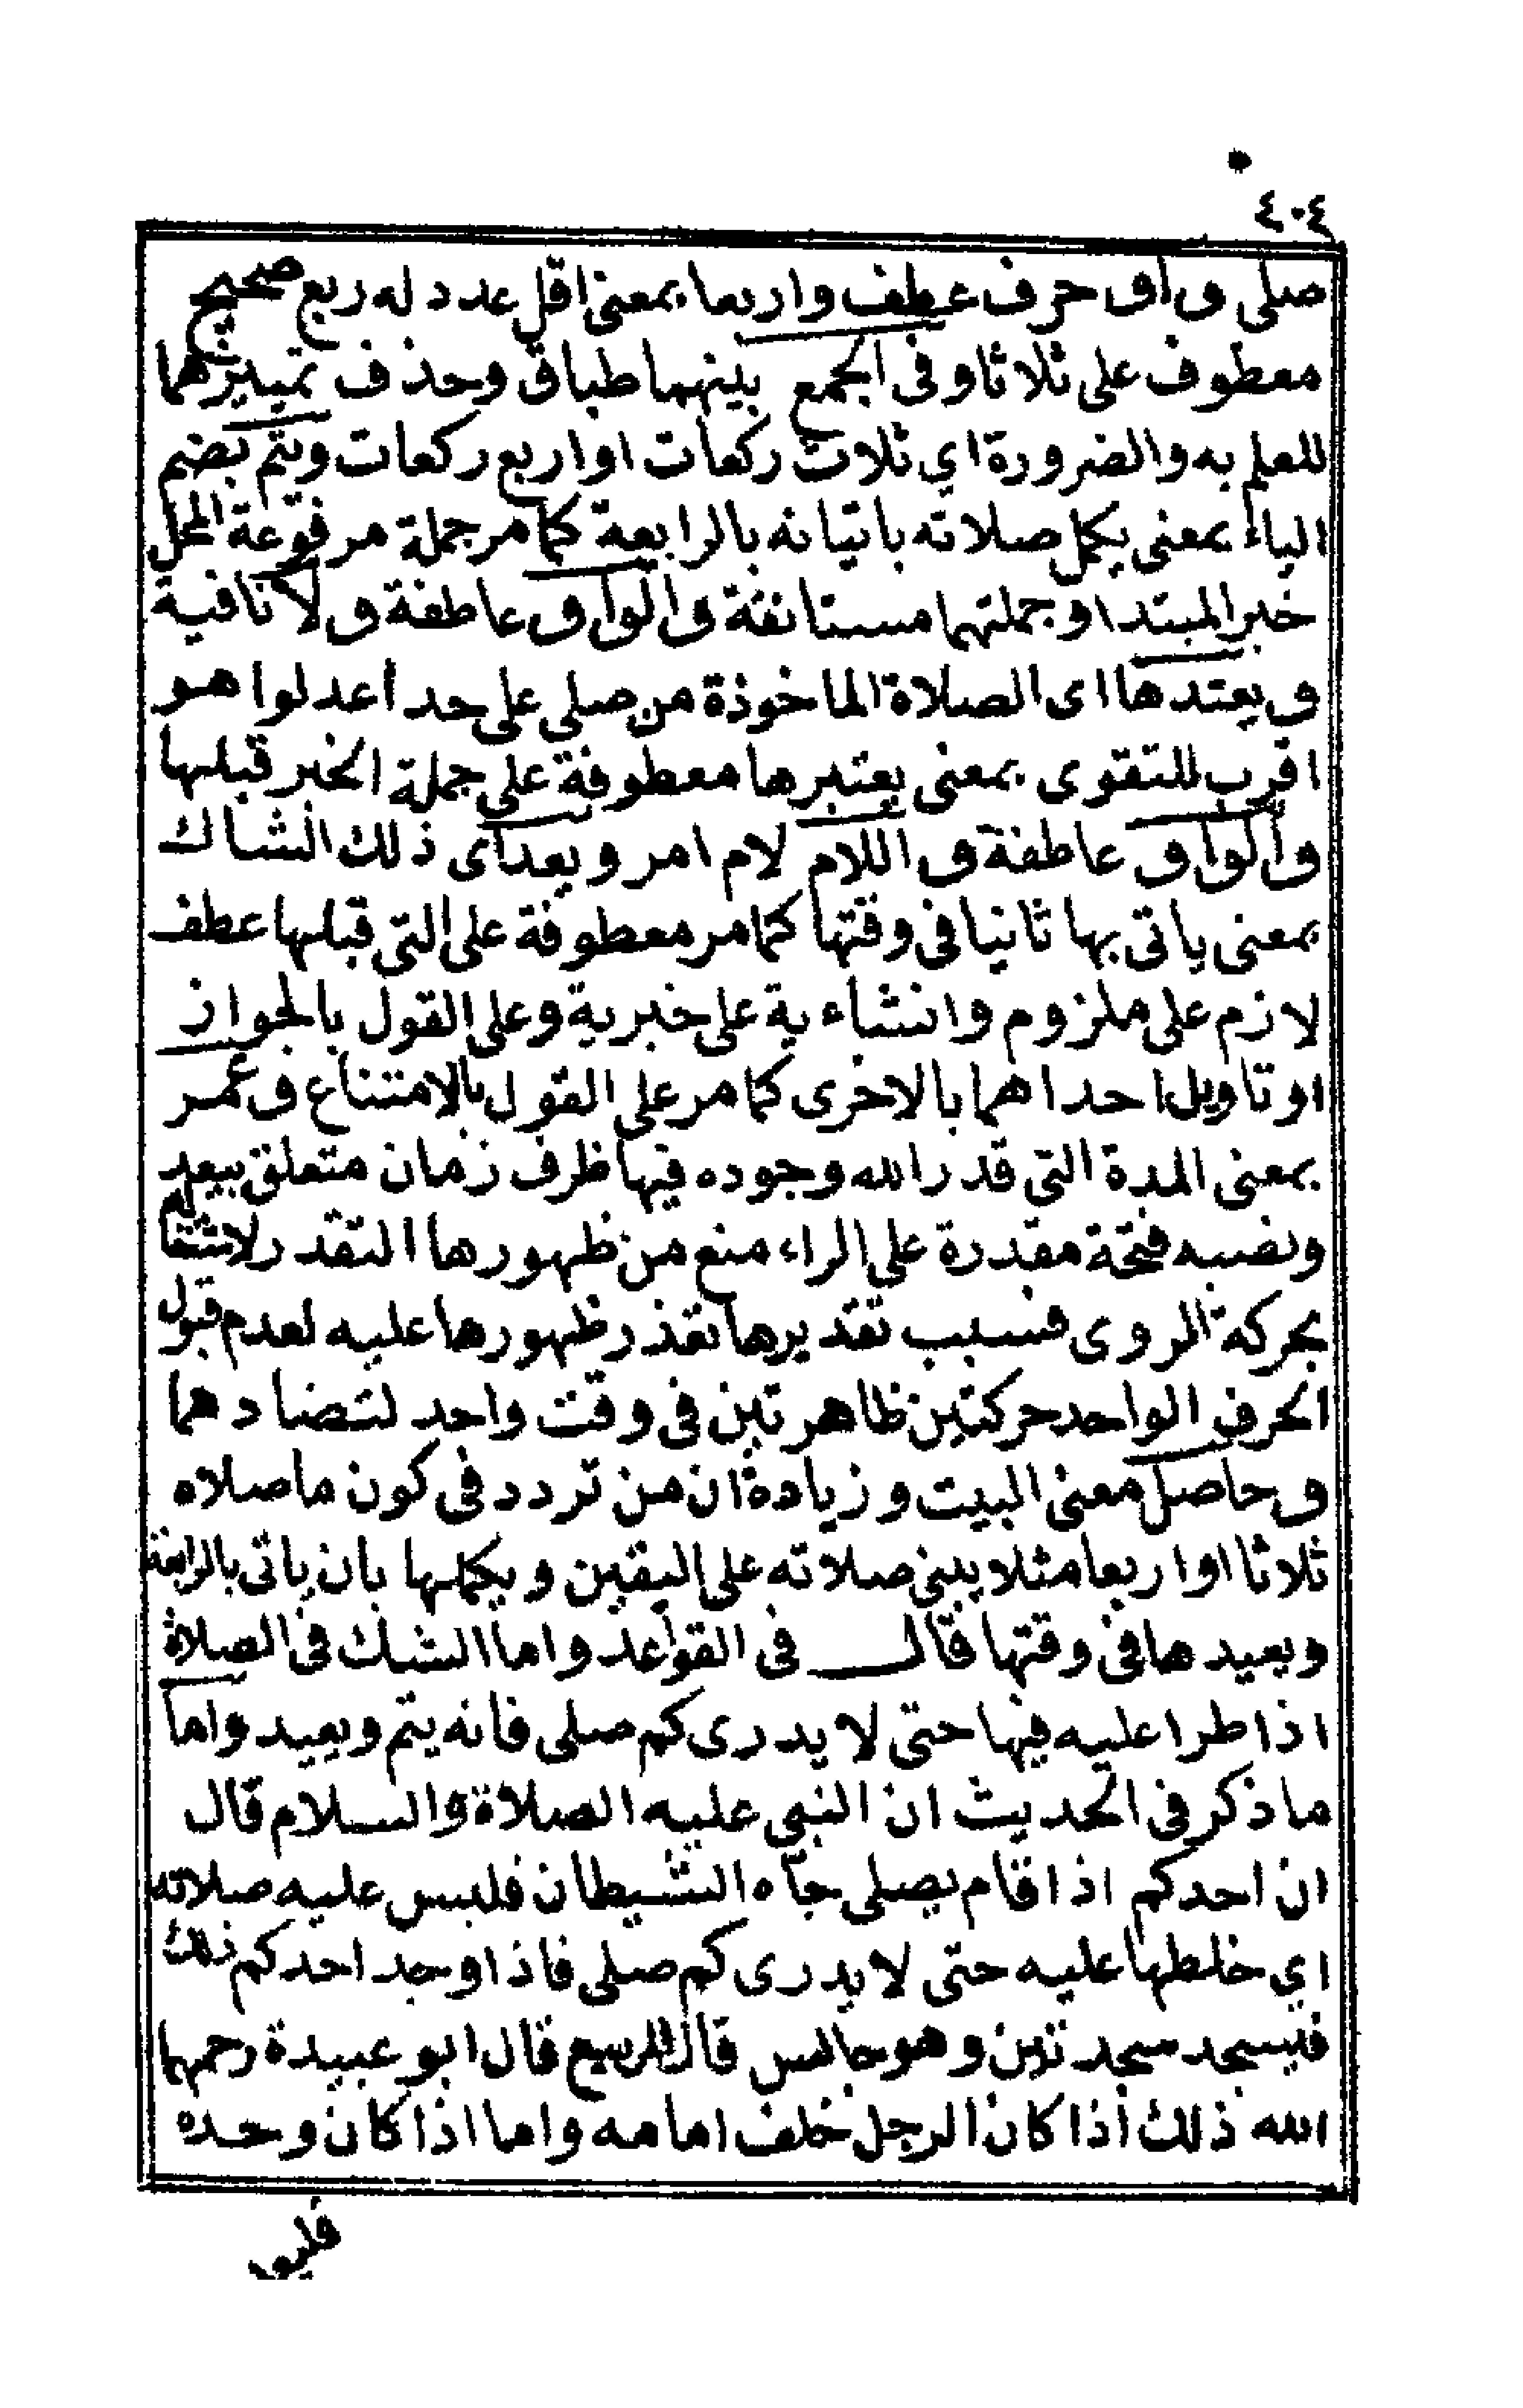 ٤٠٤
صلى و او حرف عطف واربعا بمعنى اقل عدد له ربع صحيح
معطوف على ثلاثا وفى الجمع بينهما طباق وحذف تمييزهما
للعلم به والضرورة اي ثلاث ركعات او اربع ركعات ويتم بضم
الياء بمعنى يكمل صلاته باتيانه بالرابعة كما مر جملة مرفوعة المحل
خبر المبتدا وجملتهما مستانفة والواو عاطفة ولا نافية
ويعتدها اى الصلاة الماخوذة من صلى على حد اعدلوا هو
اقرب للتقوى بمعنى يعتبرها معطوفة على جملة الخبر قبلها
والواو عاطفة و اللام لام امر و يعد اى ذلك الشاك
بمعنى ياتى بها ثانيا فى وقتها كما مر معطوفة على التى قبلها عطف
لازم على ملزوم وانشاءية على خبرية وعلى القول بالجواز
او تاويل احداهما بالاخرى كما مر على القول بالامتناع و عمر
بمعنى المدة التى قدر الله وجوده فيها ظرف زمان متعلق بيعد
ونصبه فتحة مقدرة على الراء منع من ظهورها التقدر لاشتغاله
بحركة الروى فسبب تقديرها تعذر ظهورها عليه لعدم قبول
الحرف الواحد حركتين ظاهرتين فى وقت واحد لتضادهما
وحاصل معنى البيت وزيادة ان من تردد فى كون ما صلاه
ثلاثا او اربعا مثلا يبنى صلاته على اليقين ويكملها بان ياتى بالرابعة
ويعيدها فى وقتها قال فى القواعد واما الشك فى الصلاة
اذا طرا عليه فيها حتى لا يدرى كم صلى فانه يتم ويعيد واما
ما ذكر فى الحديث ان النبى عليه الصلاة والسلام قال
ان احدكم اذا قام يصلى جآه الشيطان فلبس عليه صلاته
اي خلطها عليه حتى لا يدرى كم صلى فاذا وجد احدكم ذلك
فليسجد سجدتين وهو جالس قال الربيع قال ابو عبيدة رحمهما
الله ذلك اذا كان الرجل خلف امامه واما اذا كان وحده